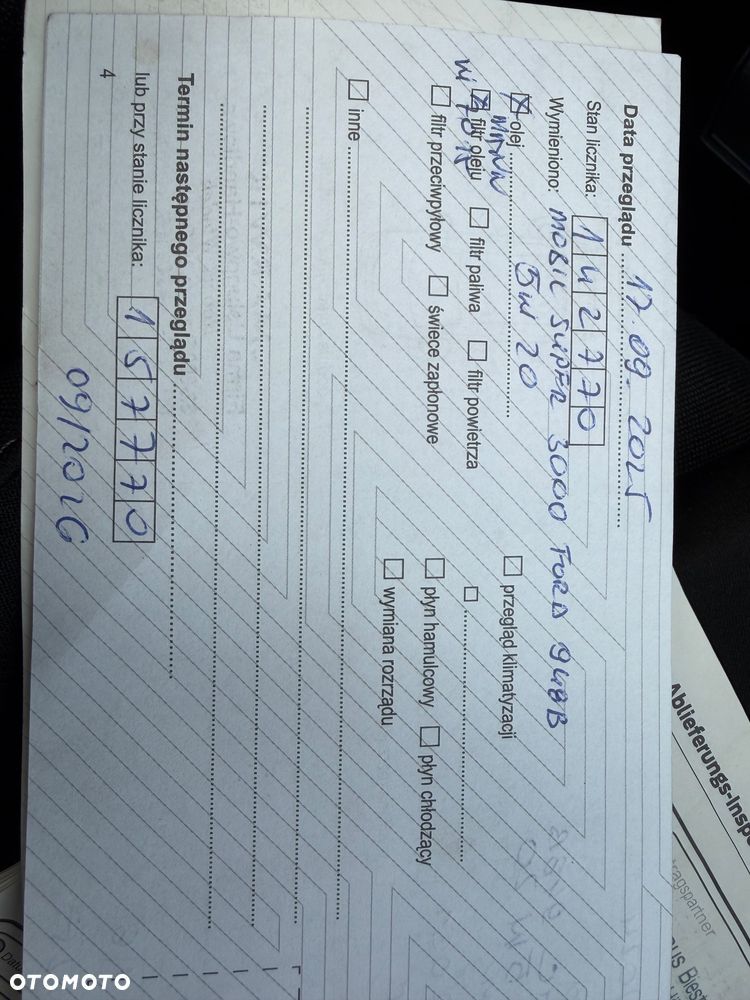 Data przeglądu 17.09.2025
Stan licznika: 142770
Wymieniono: MOBIL SUPER 3000 FORD 948B
olej 5W20
przegląd klimatyzacji
MANN
filtr oleju filtr paliwa filtr powietrza
filtr przeciwpyłowy świece zapłonowe
płyn hamulcowy płyn chłodzący
wymiana rozrządu
inne
Termin następnego przeglądu
lub przy stanie licznika: 157770
09/2026
4
Ablieferungs-Inspe
ragspartner
OTOMOTO